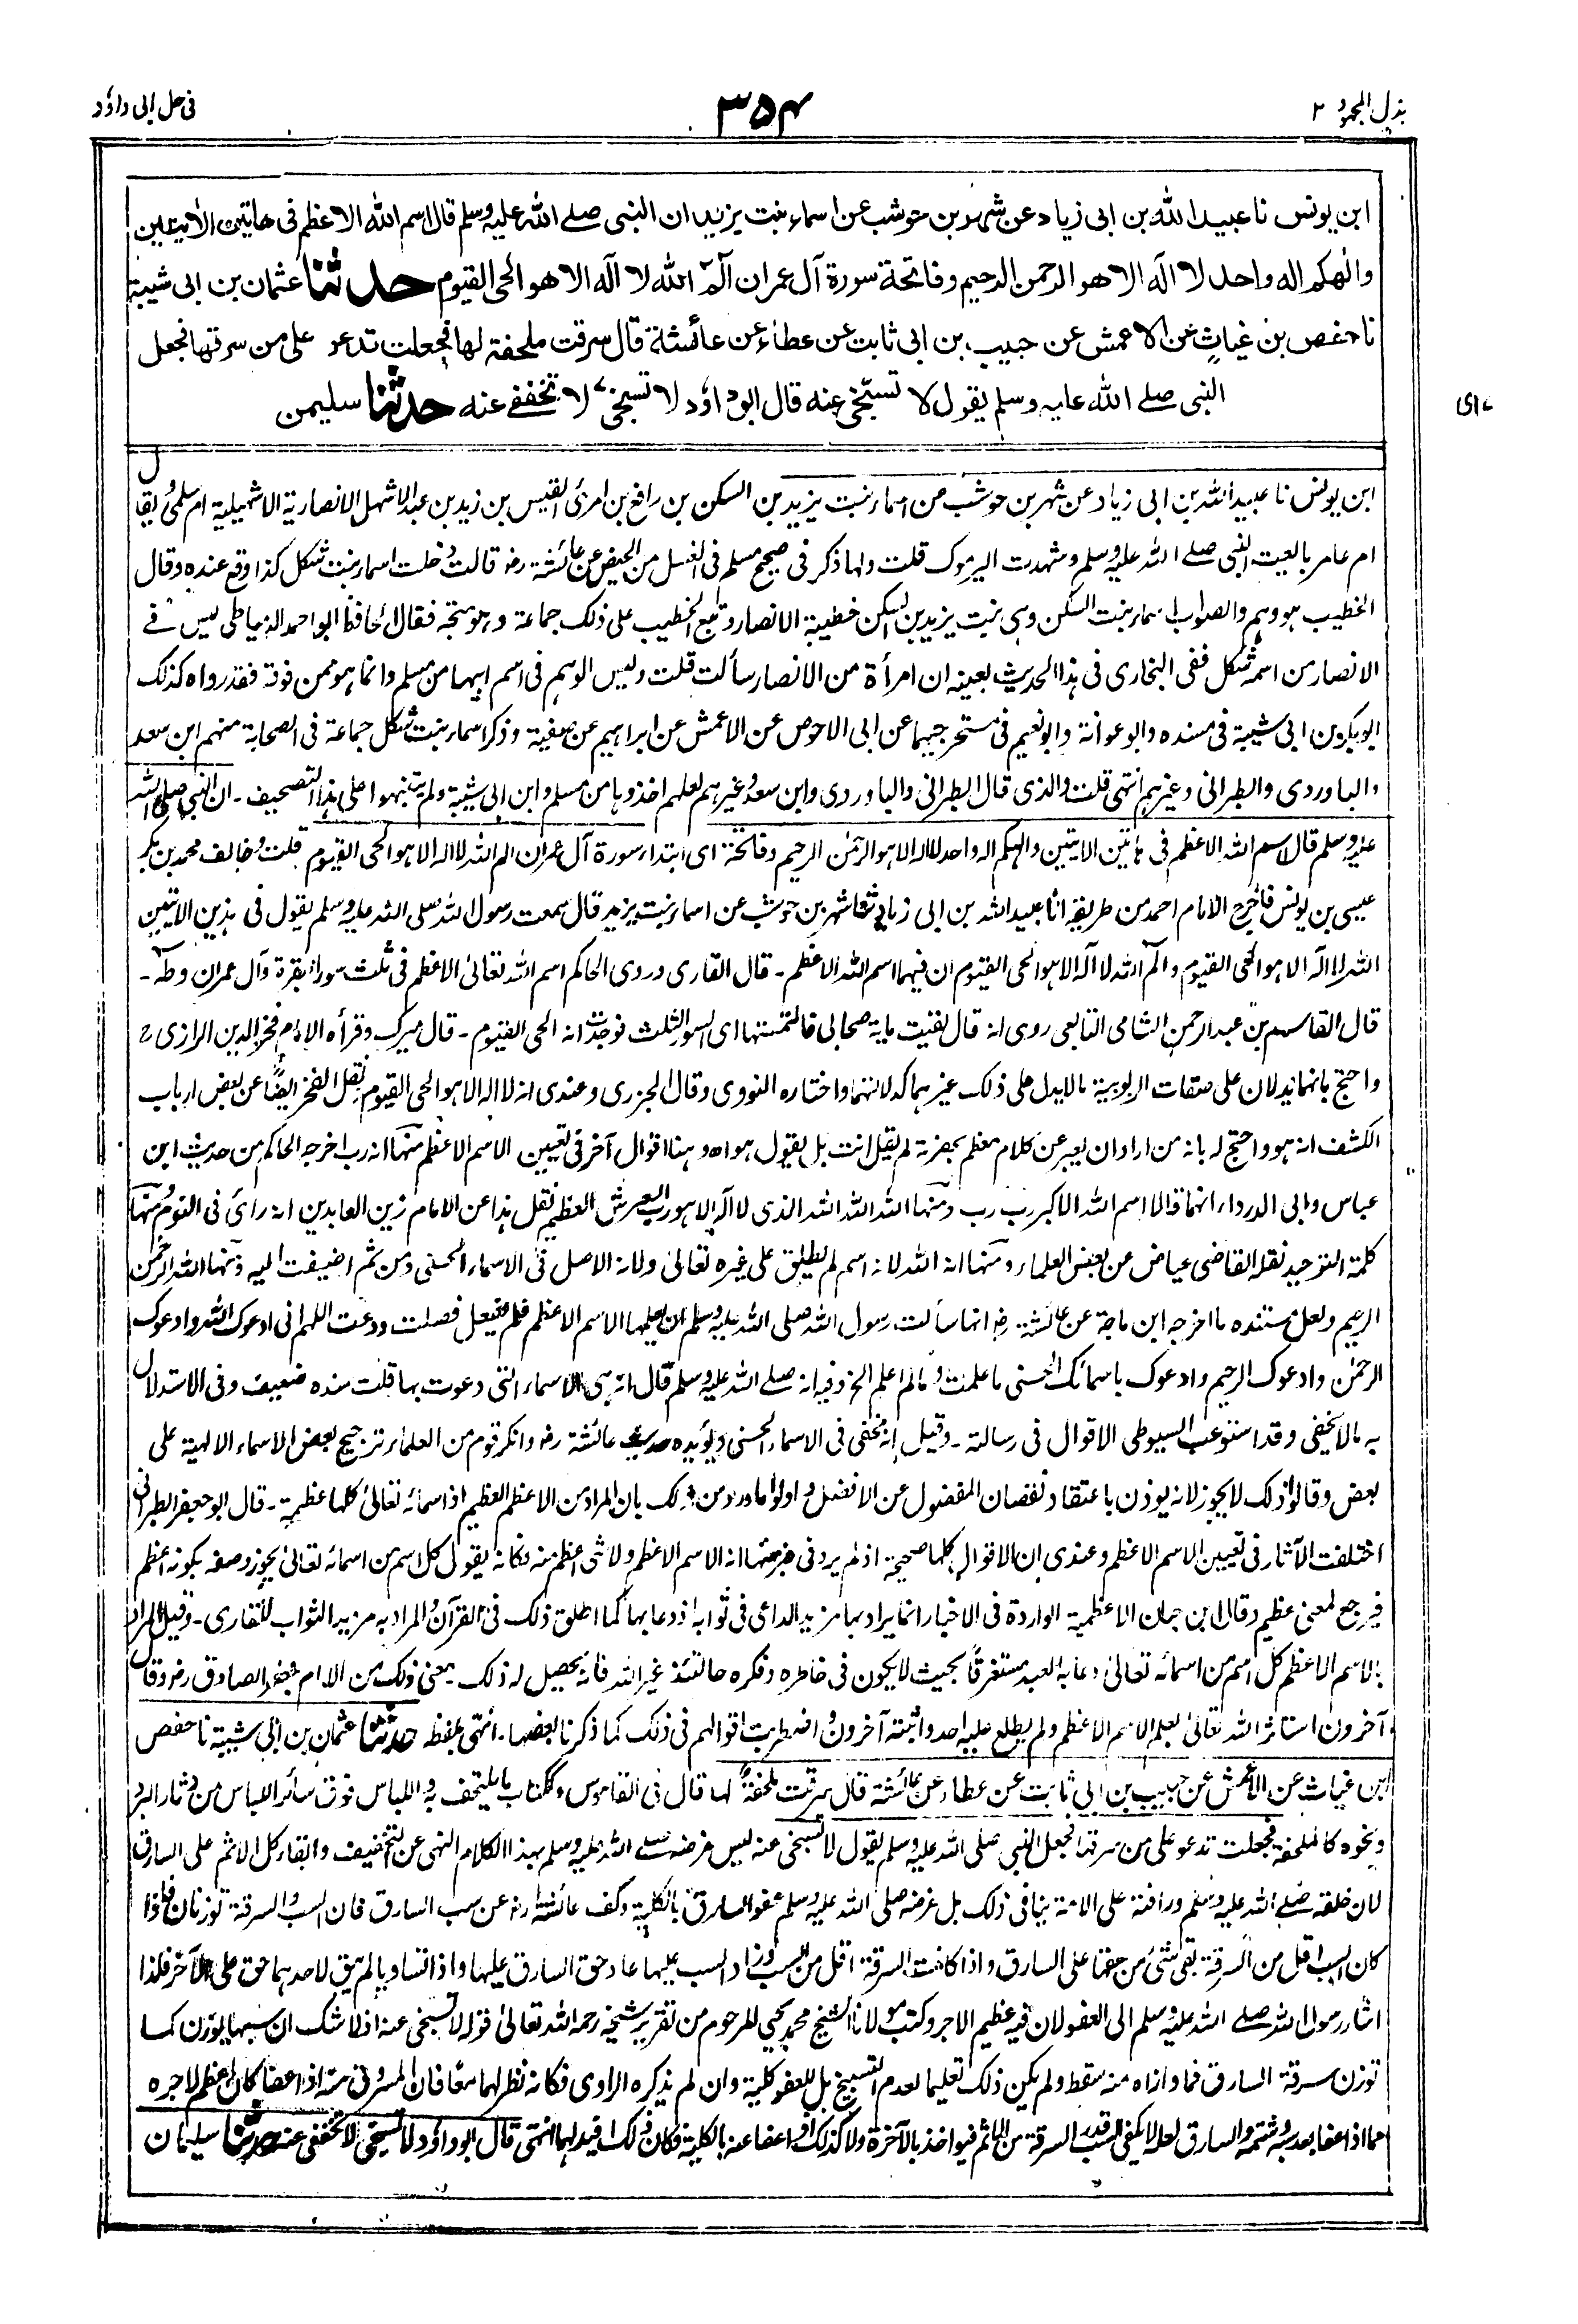 بذل المجهود ٢
٣٥٤
فى حل ابى داؤد
ابن يونس نا عبيد الله بن ابى زياد عن شهر بن حوشب عن اسماء بنت يزيد ان النبى صلے الله عليه وسلم قال اسم الله الاعظم فى هاتين الأيتين
والهكم اله واحد لا اله الا هو الرحمن الرحيم وفاتحة سورة آل عمران آلم الله لا اله الا هو الحى القيوم حدثنا عثمان بن ابى شيبة
نا حفص بن غياث عن الاعمش عن حبيب بن ابى ثابت عن عطاء عن عائشة قال سرقت ملحفة لها فجعلت تدعو على من سرقها فجعل
النبى صلے الله عليه وسلم يقول لا تسبخى عنه قال ابو داؤد لا تسبخى لا تخففى عنه حدثنا سليمن
اى
ابن يونس نا عبيد الله بن ابى زياد عن شهر بن حوشب عن اسماء بنت يزيد بن السكن بن رافع بن امرئ القيس بن زيد بن عبد الاشهل الانصارية الاشهيلية ام سلمى ويقال
ام عامر بايعت النبى صلے الله عليه وسلم وشهدت اليرموك قلت ولها ذكر فى صحيح مسلم فى الغسل من الحيض عن عائشة رض قالت دخلت اسماء بنت شكل كذا وقع عنده وقال
الخطيب هو وهم والصواب اسماء بنت السكن وهى بنت يزيد بن السكن خطيبة الانصار وتبع الخطيب على ذلك جماعة وهو متجه فقال الحافظ ابو احمد الدمياطى ليس فے
الانصار من اسمه شكل ففى البخارى فى هذا الحديث بعينه ان امرأة من الانصار سألت قلت وليس الوهم فى اسم ابيها من مسلم وانما هو ممن فوقه فقد رواه كذلك
ابو بكر بن ابى شيبة فى مسنده وابو عوانة وابو نعيم فى مستخرجيهما عن ابى الاحوص عن الاعمش عن ابراهيم عن صفية وذكر اسماء بنت شكل جماعة فى الصحابة منهم ابن سعد
والباوردى والطبرانى وغيرهم انتهى قلت والذى قال الطبرانى والباوردى وابن سعد وغيرهم لعلهم اخذوها من مسلم وابن ابى شيبة ولم يتنبهوا على هذا التصحيف ۔ ان النبى صلى الله
عليه وسلم قال اسم الله الاعظم فى هاتين الايتين والهكم اله واحد لا اله الا هو الرحمن الرحيم وفاتحة اى ابتداء سورة آل عمران الم الله لا اله الا هو الحى القيوم قلت وخالف محمد بن بكر
عيسى بن يونس فاخرج الامام احمد من طريقه انا عبيد الله بن ابى زياد ثنا شهر بن حوشب عن اسماء بنت يزيد قال سمعت رسول الله صلى الله عليه وسلم يقول فى هذين الايتين
الله لا اله الا هو الحى القيوم والم الله لا اله الا هو الحى القيوم ان فيهما اسم الله الاعظم ۔ قال القارى وروى الحاكم اسم الله تعالى الاعظم فى ثلث سور البقرة وآل عمران وطه ۔
قال القاسم بن عبد الرحمن الشامى التابعى روى انه قال لقيت مأية صحابى فالتمستها اى السور الثلث فوجدت انه الحى القيوم ۔ قال ميرك وقرأه الامام فخر الدين الرازى ح
واحتج بانهما يدلان على صفات الربوبية ما لا يدل على ذلك غيرهما كدلالتهما واختاره النووى وقال الجزرى وعندى انه لا اله الا هو الحى القيوم نقل الفخر ايضا عن بعض ارباب
الكشف انه هو واحتج له بانه من اراد ان يعبر عن كلام معظم بحضرته لم يقل انت بل يقول هو اه وهنا اقوال آخر فى تعيين الاسم الاعظم منها انه رب اخرجه الحاكم من حديث ابن
عباس وابى الدرداء انهما قالا اسم الله الاكبر رب رب ومنها الله الله الله الذى لا اله الا هو رب العرش العظيم نقل هذا عن الامام زين العابدين انه رأى فى النوم ومنها
كلمة التوحيد نقله القاضى عياض عن بعض العلماء ومنها انه الله لانه اسم لم يطلق على غيره تعالى ولانه الاصل فى الاسماء الحسنى ومن ثم اضيفت اليه ومنها الله الرحمن
الرحيم ولعل مستنده ما اخرجه ابن ماجة عن عائشة رض انها سألت رسول الله صلى الله عليه وسلم ان يعلمها الاسم الاعظم فلم يفعل فصلت ودعت اللهم انى ادعوك الله وادعوك
الرحمن وادعوك الرحيم وادعوك باسمائك الحسنى ما علمت وما لم اعلم الخ وفيه انه صلے الله عليه وسلم قال انه هى الاسماء التى دعوت بها قلت سنده ضعيف وفى الاستدلال
به ما لا يخفى وقد استوعب السيوطى الاقوال فى رسالته ۔ وقيل انه مخفى فى الاسماء الحسنى ويؤيده حديث عائشة رض وانكر قوم من العلماء ترجيح بعض الاسماء الالهية على
بعض وقالوا ذلك لا يجوز لانه يوذن باعتقاد نقصان المفضول عن الافضل واولوا ما ورد من ذلك بان المراد من الاعظم العظيم اذ اسمائه تعالى كلها عظيمة ۔ قال ابو جعفر الطبرانى
اختلفت الآثار فى تعيين الاسم الاعظم وعندى ان الاقوال كلها صحيحة اذ لم يرد فى خبر منها انه الاسم الاعظم ولا شئ اعظم منه فكانه يقول كل اسم من اسمائه تعالى يجوز وصفه بكونه اعظم
فيرجع لمعنى عظيم وقال ابن حبان الاعظمية الواردة فى الاخبار انما يراد بها مزيد الداعى فى ثوابه اذ دعا بها كما اطلق ذلك فى القرآن والمراد به مزيد الثواب للقارى ۔ وقيل المراد
بالاسم الاعظم كل اسم من اسمائه تعالى دعا به العبد مستغرقا بحيث لا يكون فى خاطره وفكره حالتئذ غير الله فانه يحصل له ذلك ۔ معنى ذلك من الامام جعفر الصادق رض وقال
آخرون استاثر الله تعالى بعلم الاسم الاعظم ولم يطلع عليه احد واثبته آخرون واضطربت اقوالهم فى ذلك كما ذكرنا بعضها ۔ انتهى بلفظه حدثنا عثمان بن ابى شيبة نا حفص
ابن غياث عن الاعمش عن حبيب بن ابى ثابت عن عطاء عن عائشة قال سرقت ملحفة لها قال فى القاموس وككتاب ما يلتحف به واللباس فوق سائر اللباس من دثار البرد
ونحوه كالملحفة فجعلت تدعو على من سرقها فجعل النبى صلى الله عليه وسلم يقول لا تسبخى عنه ليس غرضه صلے الله عليه وسلم بهذا الكلام النهى عن التخفيف وابقاء كل الاثم على السارق
لان خلقه صلے الله عليه وسلم ورافته على الامة ينافى ذلك بل غرضه صلى الله عليه وسلم عفو السارق بالكلية وكف عائشة رض عن سب السارق فان السب والسرقة توزنان فاذا
كان السب اقل من السرقة بقى شئ من حقها على السارق واذا كانت السرقة اقل من السب وزاد السب عليها عاد حق السارق عليها واذا تساويا لم يبق لاحدهما حق على الآخر فلذا
اشار رسول الله صلے الله عليه وسلم الى العفو لان فيه عظيم الاجر وكتب مولانا الشيخ محمد يحيى المرحوم من تقرير شيخه رحمه الله تعالى قوله لا تسبخى عنه اذ لا شك ان سبها يوزن كما
توزن سرقة السارق فما وازاه منه سقط ولم يكن ذلك تعليما لعدم التسبيخ بل للعفو كلية وان لم يذكره الراوى فكانه نظر لهما معا فان المسروق منه اذا عفا كان اعظم لاجره
مما اذا عفا بعد سبه وشتمه والسارق لعله لا يكفى السب قدر السرقة من الماثم فيواخذ بالآخرة ولا كذلك لو عفا عنه بالكلية فكان ذلك افيد لهما انتهى قال ابو داؤد لا تسبخى لا تخففى عنه حدثنا سليمان